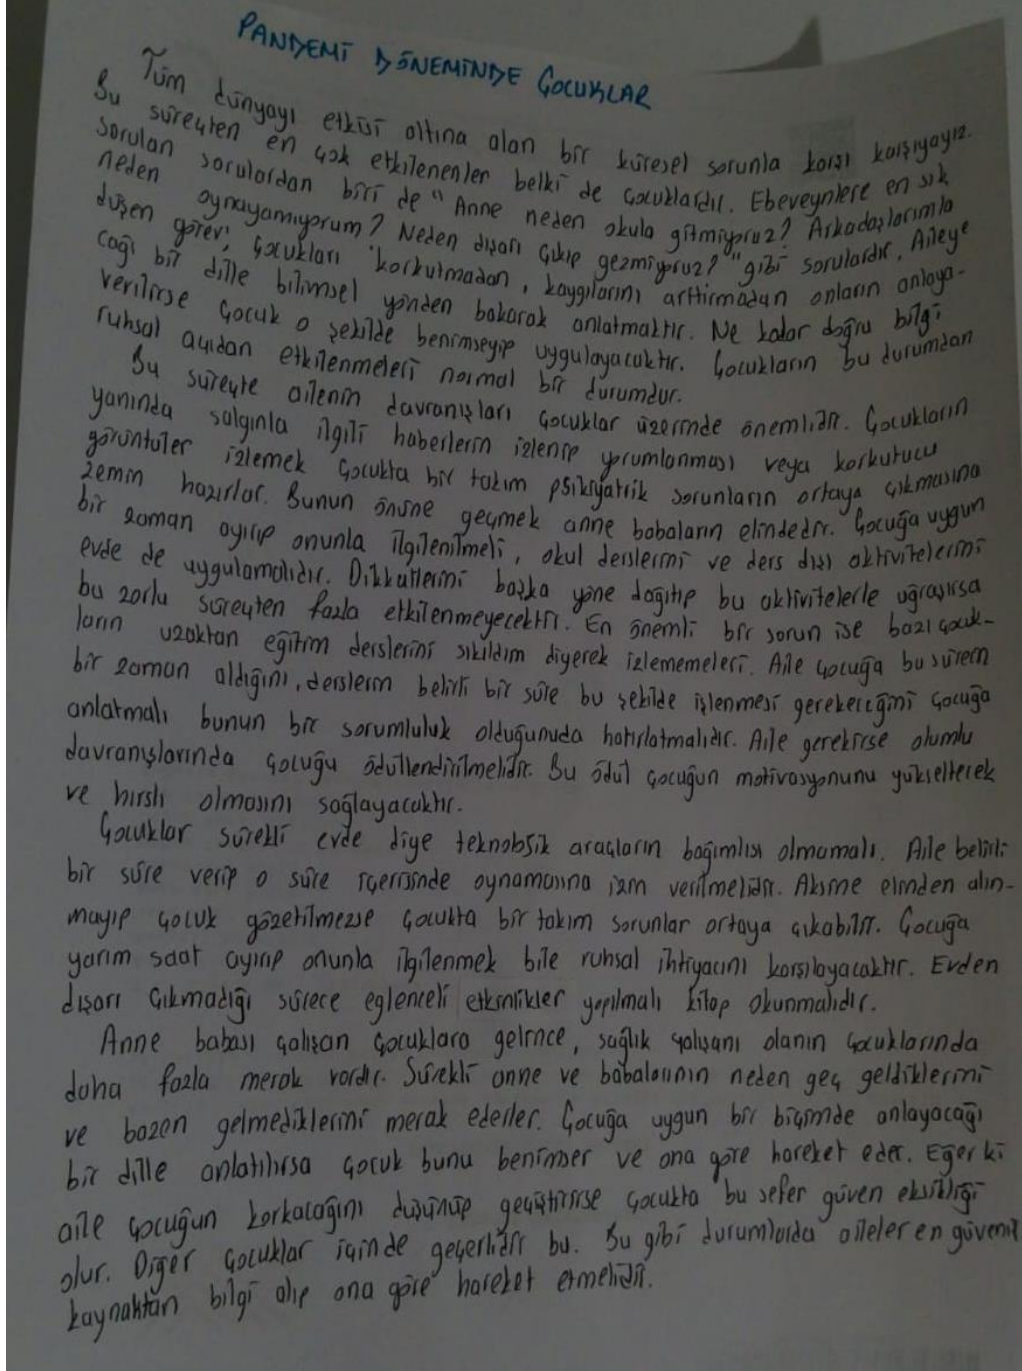 PANDEMİ DÖNEMİNDE ÇOCUKLAR
Tüm dünyayı etkisi altına alan bir küresel sorunla karşı karşıyayız.
Bu süreçten en çok etkilenenler belki de çocuklardır. Ebeveynlere en sık
sorulan sorulardan biri de "Anne neden okula gitmiyoruz? Arkadaşlarımla
neden oynayamıyorum? Neden dışarı çıkıp gezmiyoruz?" gibi sorulardır, Aileye
düşen görev, çocukları korkutmadan, kaygılarını arttırmadan onların anlaya-
cağı bir dille bilimsel yönden bakarak anlatmaktır. Ne kadar doğru bilgi
verilirse çocuk o şekilde benimseyip uygulayacaktır. Çocukların bu durumdan
ruhsal açıdan etkilenmeleri normal bir durumdur.
Bu süreçte ailenin davranışları çocuklar üzerinde önemlidir. Çocukların
yanında salgınla ilgili haberlerin izlenip yorumlanması veya korkutucu
görüntüler izlemek çocukta bir takım psikiyatrik sorunların ortaya çıkmasına
zemin hazırlar. Bunun önüne geçmek anne babaların elindedir. Çocuğa uygun
bir zaman ayırıp onunla ilgilenilmeli, okul derslerini ve ders dışı aktivitelerini
evde de uygulamalıdır. Dikkatlerini başka yöne dağıtıp bu aktivitelerle uğraşırsa
bu zorlu süreçten fazla etkilenmeyecektir. En önemli bir sorun ise bazı çocuk-
ların uzaktan eğitim derslerini sıkıldım diyerek izlememeleri. Aile çocuğa bu sürenin
bir zaman aldığını, derslerin belirli bir süre bu şekilde işlenmesi gerekeceğini çocuğa
anlatmalı bunun bir sorumluluk olduğunuda hatırlatmalıdır. Aile gerekirse olumlu
davranışlarında çocuğu ödüllendirilmelidir. Bu ödül çocuğun motivasyonunu yükselterek
ve hırslı olmasını sağlayacaktır.
Çocuklar sürekli evde diye teknolojik araçların bağımlısı olmamalı. Aile belirli
bir süre verip o süre içerisinde oynamasına izin verilmelidir. Aksine elinden alın-
mayıp çocuk gözetilmezse çocukta bir takım sorunlar ortaya çıkabilir. Çocuğa
yarım saat ayırıp onunla ilgilenmek bile ruhsal ihtiyacını karşılayacaktır. Evden
dışarı çıkmadığı sürece eglenceli etkinlikler yapılmalı kitap okunmalıdır.
Anne babası çalışan çocuklara gelince, sağlık çalışanı olanın çocuklarında
daha fazla merak vardır. Sürekli anne ve babalarının neden geç geldiklerini
ve bazen gelmediklerini merak ederler. Çocuğa uygun bir biçimde anlayacağı
bir dille anlatılırsa çocuk bunu benimser ve ona göre hareket eder. Eğer ki
aile çocuğun korkacağını düşünüp geçiştirirse çocukta bu sefer güven eksikliği
olur. Diğer çocuklar içinde geçerlidir bu. Bu gibi durumlarda aileler en güvenil
kaynaktan bilgi alıp ona göre hareket etmelidir.